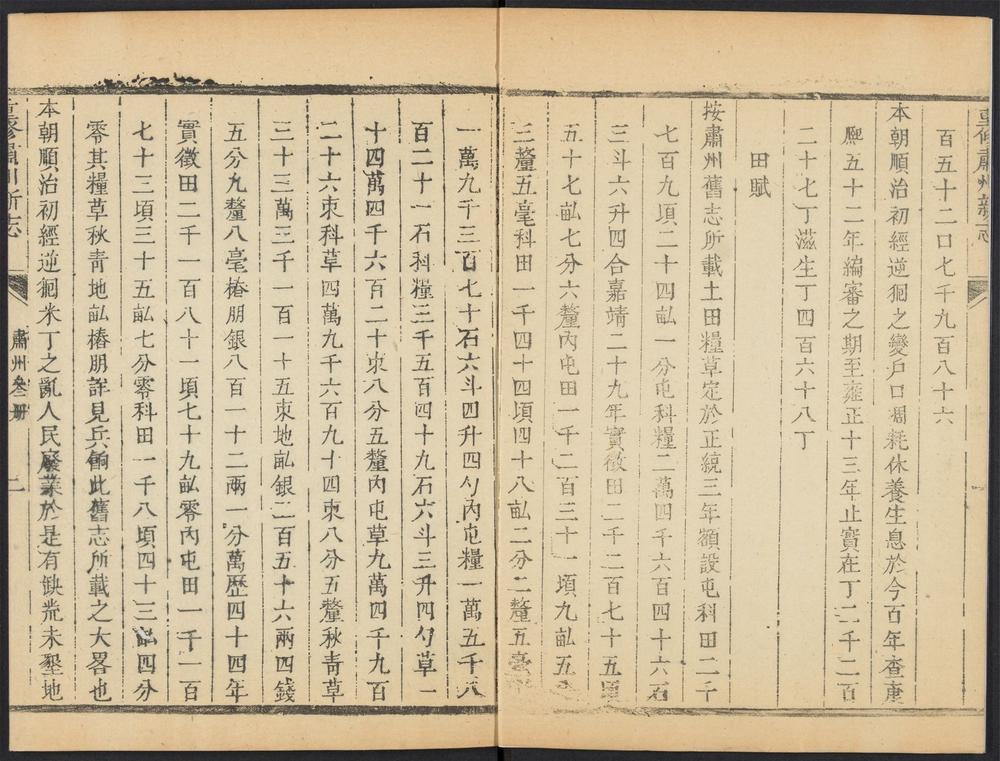 重修肅州新志
百五十二口七千九百八十六
本朝順治初經逆徊之變戶口凋耗休養生息於今百年查康
熈五十二年編審之期至雍正十三年止實在丁二千二百
二十七丁滋生丁四百六十八丁
田賦
按肅州舊志所載土田糧草定於正統三年額設屯科田二千
七百九頃二十四畆一分屯科糧二萬四千六百四十六石
三斗六升四合嘉靖二十九年實徵田二千二百七十五頃
五十七畆七分六釐內屯田一千二百三十一頃九畆五分
三釐五毫科田一千四十四頃四十八畆二分二釐五毫
一萬九千三百七十石六斗四升四勺內屯糧一萬五千八
百二十一石科糧三千五百四十九石六斗三升四勺草一
十四萬四千六百二十束八分五釐內屯草九萬四千九百
二十六束科草四萬九千六百九十四束八分五釐秋青草
三十三萬三千一百一十五束地畆銀二百五十六兩四錢
五分九釐八毫樁朋銀八百一十二兩一分萬歷四十四年
實徵田二千一百八十一頃七十九畆零內屯田一千一百
七十三頃三十五畆七分零科田一千八頃四十三畆四分
零其糧草秋靑地畆樁朋詳見兵餉此舊志所載之大畧也
本朝順治初經逆徊米丁之亂人民廢業於是有缺荒未墾地
重修肅州新志
肅州叄册
二